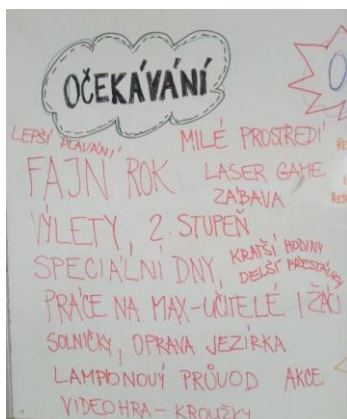 OČEKÁVÁNÍ
LEPŠÍ PLAVÁNÍ
MILÉ PROSTŘEDÍ
FAJN ROK
LASER GAME
ZÁBAVA
VÝLETY, 2. STUPEŇ
SPECIÁLNÍ DNY,
KRATŠÍ HODINY
DELŠÍ PŘESTÁVKY
PRÁCE NA MAX-UČITELÉ I ŽÁCI
SOLNIČKY, OPRAVA JEZÍRKA
LAMPIONOVÝ PRŮVOD AKCE
VIDEOHRA- KROUŽKY